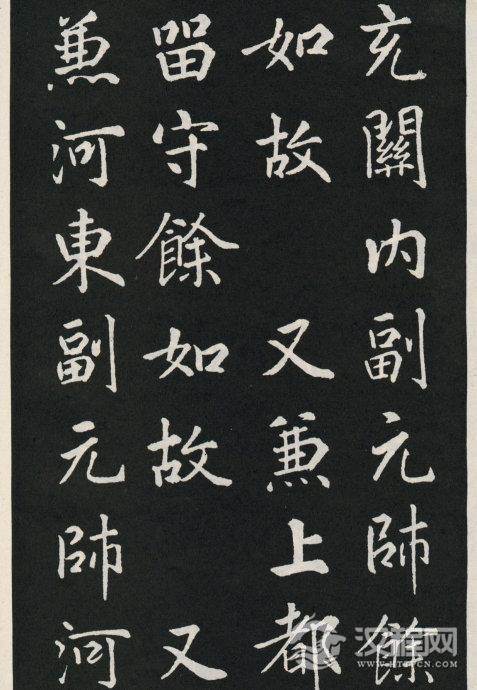 充關內副元帥餘
如故　又兼上都
留守餘如故　又
兼河東副元帥河
汉程网
WWW.HTTPCN.COM